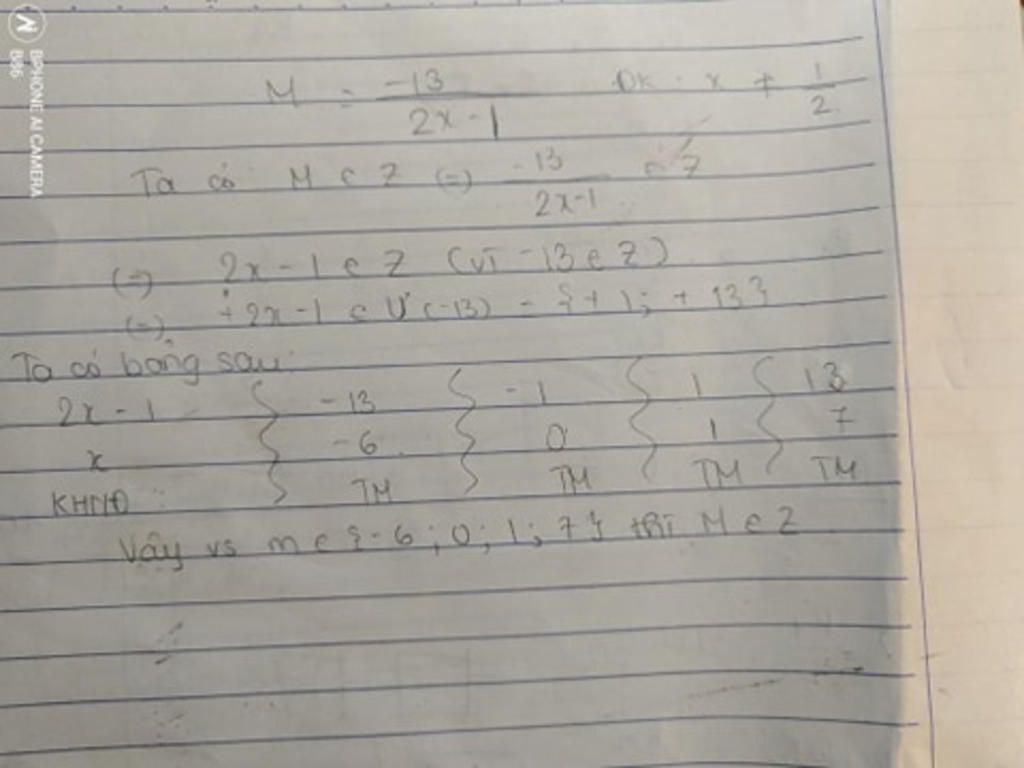 BPHONE AI CAMERA
B86
M = -13/(2x-1) ĐK: x ≠ 1/2
Ta có M ∈ Z (=) -13/(2x-1) ∈ Z
(=) 2x-1 ∈ Z (vì -13 ∈ Z)
(=) 2x-1 ∈ Ư(-13) = {±1; ±13}
Ta có bảng sau:
2x-1 -13 -1 1 13
x -6 0 1 7
TM TM TM TM
Vậy vs m ∈ {-6; 0; 1; 7} thì M ∈ Z